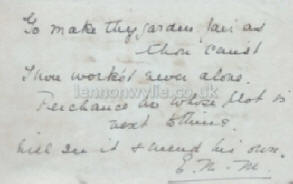 To make thy garden fair as
thou canst
Thou workest never alone.
Perchance he whose plot is
next to thine
will see it & mend his own.
E. M. - M.
lennonwylie.co.uk